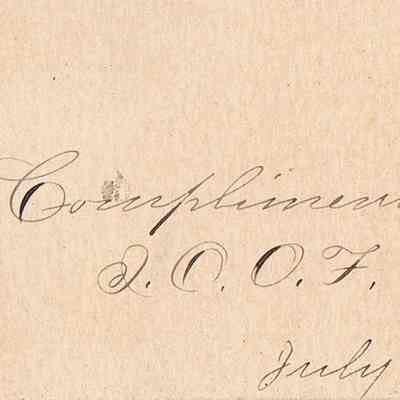 Complimen
I. O. O. F.
July